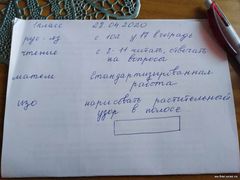 1 класс 29.04.2020
рус-яз с 102 у
чтение с 9-11 читать, отвечать
на вопросы
матем Стандартизированная
работа
изо нарисовать растительный
узор в полосе